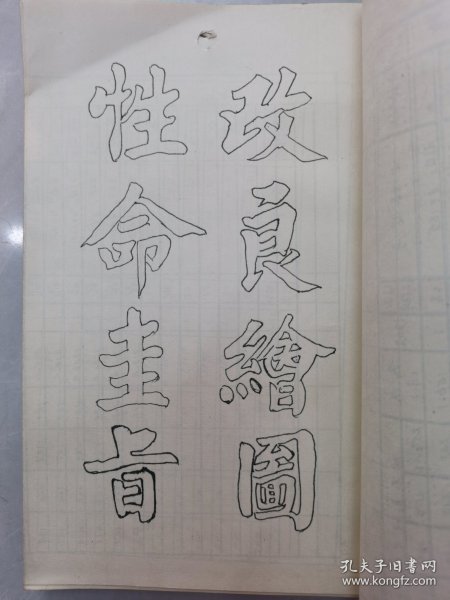 改良繪圖
性命圭旨
孔夫子旧书网
www.kongfz.com